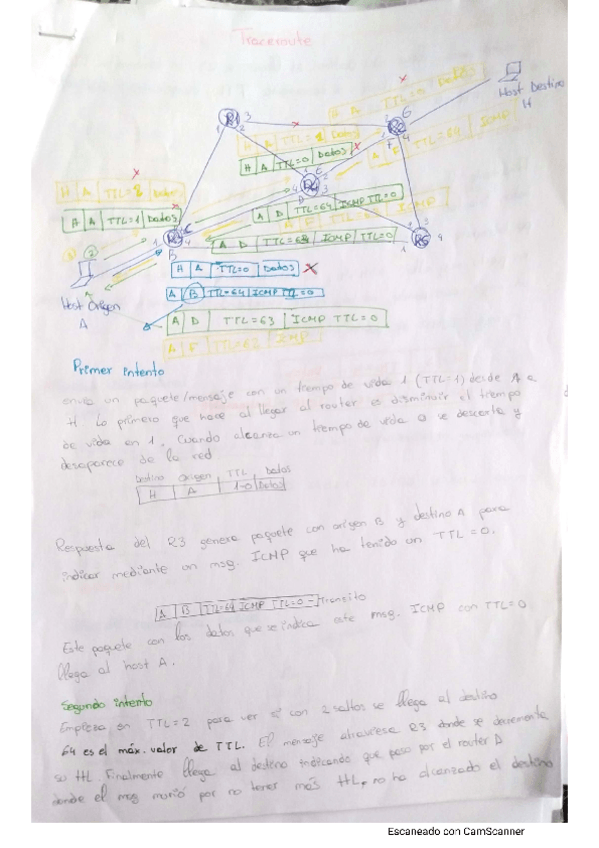 Traceroute
R1 3
1 2
H A TTL=0 Datos
Host Destino
H
R2
H A TTL= Datos
H A TTL=0 Datos
A F TTL=64 ICMP
H A TTL= Datos
H A TTL=1 Datos
R4
A D TTL=64 ICMP TTL=0
A F TTL=6 ICMP
R3
A D TTL=63 ICMP TTL=0
R5
1 2
Host Origen
A
B
H A TTL=0 Datos X
A B TTL=64 ICMP TTL=0
A D TTL=63 ICMP TTL=0
A F TTL=62 ICMP
Primer intento
envia un paquete/mensaje con un tiempo de vida 1 (TTL=1) desde A a
H. Lo primero que hace al llegar al router es disminuir el tiempo
de vida en 1. Cuando alcanza un tiempo de vida 0 se descarta y
desaparece de la red
Destino Origen TTL Datos
H A 1-0 Datos
Respuesta del R3 genera paquete con origen B y destino A para
indicar mediante un msg. ICMP que ha tenido un TTL=0.
A B TTL=64 ICMP TTL=0 - Transito
Este paquete con los datos que se indica este msg. ICMP con TTL=0
llega al host A.
Segundo intento
Empieza en TTL=2 para ver si con 2 saltos se llega al destino
64 es el máx. valor de TTL. El mensaje atraviesa R3 donde se decrementa
su ttl. Finalmente llega al destino indicando que paso por el router D
donde el msg murió por no tener más ttl, no ha alcanzado el destino
Escaneado con CamScanner